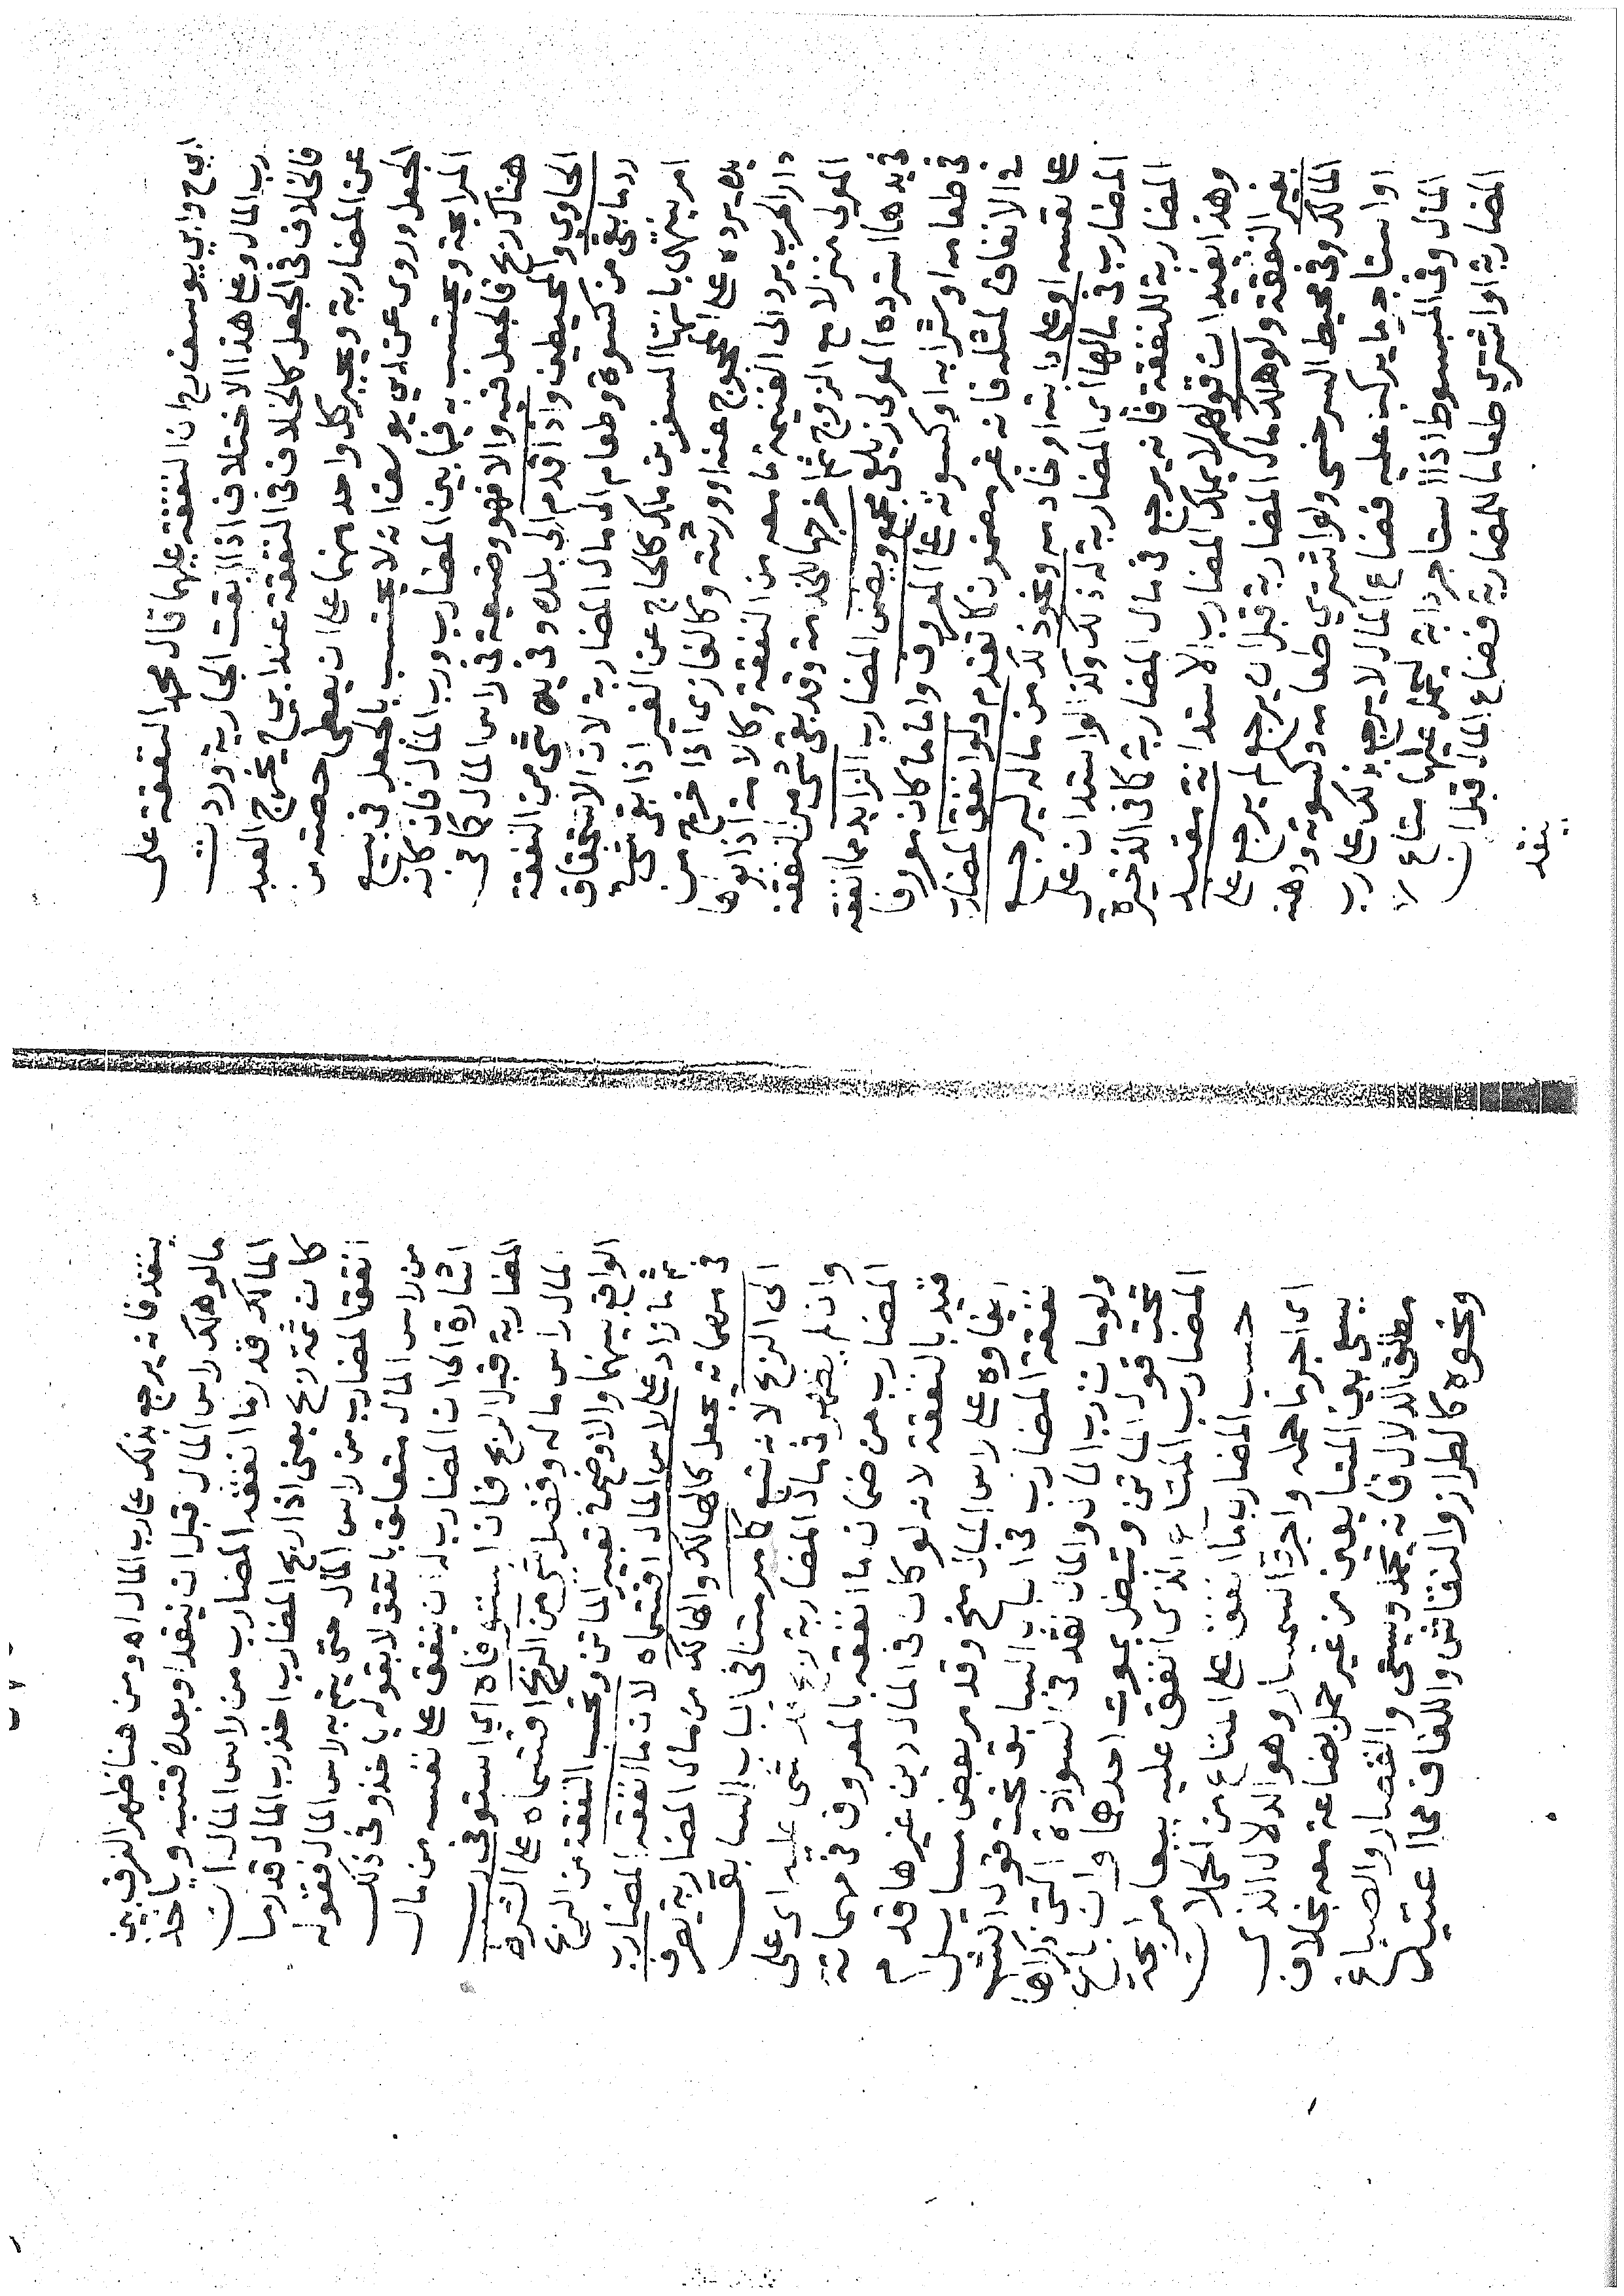 ابي ح وابي يوسف رح ان النفقة عليهما قال محمد النفقة على
رب المال وعلى هذا الاختلاف اذا ابقت الجارية وردت
فالخلاف في الجعل كالخلاف في النفقة عند ابي ح يخرج العبد
عن المضاربة ويجبر كل واحد منهما على ان يعطى حصته من
الجعل وروى عن ابي يوسف انه لا يحتسب بالجعل في بيع
المرابحة ويحتسب به فيما بين المضارب ورب المال فان كان
هناك ربح فالجعل فيه والا فهو وضيعة في راس المال كما في
الحاوي والمحيطين واذا قدم الى بلده وفي يده شي من النفقة
رد ما بقى من كسوة وطعام الى مال المضاربة لان الاستحقاق
امر ينتهى بانتها السفر من ملك كالحاج عن الغير اذا بقى شي
بيده يرده على المحجوج عنه او ورثته وكالغازى اذا خرج من
دار الحرب يرد الى الغنيمة ما معه من النفقة وكالامة اذا بوها
المولى منزلا مع الزوج ثم اخرجها للخدمة وقد بقى شي من النفقة
في يدها استرده المولى زيلعى مجموع ويضمن المضارب الزايد مما انفقه
في طعامه او شرابه او كسوته على المعروف واما ما كان معروفا
في الانفاق لمثله فانه غير مضمون كما تقدم ولو انفق المضارب
على نفسه او على دابته او خادمه ونحو ذلك من ماله ليرجع
المضارب في مالها اى المضاربة له ذلك وكذا لو استدان على
المضاربة للنفقة فانه يرجع في مال المضاربة كما في الذخيرة
وهذا يفيد ان قولهم لا يملك المضارب الاستدانة مقيد
بغير النفقة ولو هلك مال المضاربة قبل ان يرجع لم يرجع على
المالك وفي محيط السرخسى ولو اشترى طعامه وكسوته ودهنه
او استاجر ما يركب عليه فضاع المال لا يرجع بذلك على رب
المال وفي المبسوط اذا استاجر دابة ليحمل عليها متاع
المضاربة او اشترى طعاما للمضاربة فضاع المال قبل ان
ينفد
ينفد فانه يرجع بذلك على رب المال اه ومن هنا ظهر الفرق بين
ما لو هلك راس المال قبل ان ينقد او بعده فتنبه وياخذ
المالك قدر ما انفقه المضارب من راس المال ان
كان ثمة ربح يعنى اذا ربح المضارب اخذ رب المال قدر ما
انفق المضارب من راس المال حتى يتم به راس المال فقوله
من راس المال متعلق بانفق لا بقوله ياخذ وفي ذلك
اشارة الى ان المضارب له ان ينفق على نفسه من مال
المضاربة قبل الربح فان استوفاه اي استوفى رب
المال راس ماله وفضل شي من الربح اقتسماه على الشرط
الواقع بينهما والاوضح تعبير الماتن وتحسب النفقة من الربح
ثم ما زاد على راس المال اقتسماه لان ما انفقه المضارب
في مهماته يجعل كالهالك والهالك من مال المضاربة يصرف
الى الربح لانه تبع كما مر متنا في الباب السابق
وان لم يظهر في مال المضاربة ربح فلا شي عليه اى على
المضارب من ضمان ما انفقه بالمعروف في مهماته
قيد بالنفقة لانه لو كان في المال دين غيرها قدم
ايفاوه على راس المال منح وقد مر بعض مسايل
نفقة المضارب في الباب السابق تحت قول الشر
ولو مات رب المال والمال نقد في السوادة التي ذكراها
تحت قول الماتن وتبطل بموت احدهما وان باع
المضارب المتاع الذى انفق عليه بيعا مرابحة
حسب المضارب ما انفق على المتاع من الحملان
اى اجر ما حمله واجرة السمسار وهو الدلال الذى
يسعى بين المتبايعين من غير حمل بضاعة معه بخلاف
مطلق الدلال فانه يحمل ويسعى والقصار والصباغ
ونحوه كالطراز والنقاش واللفاف مما اعتيد